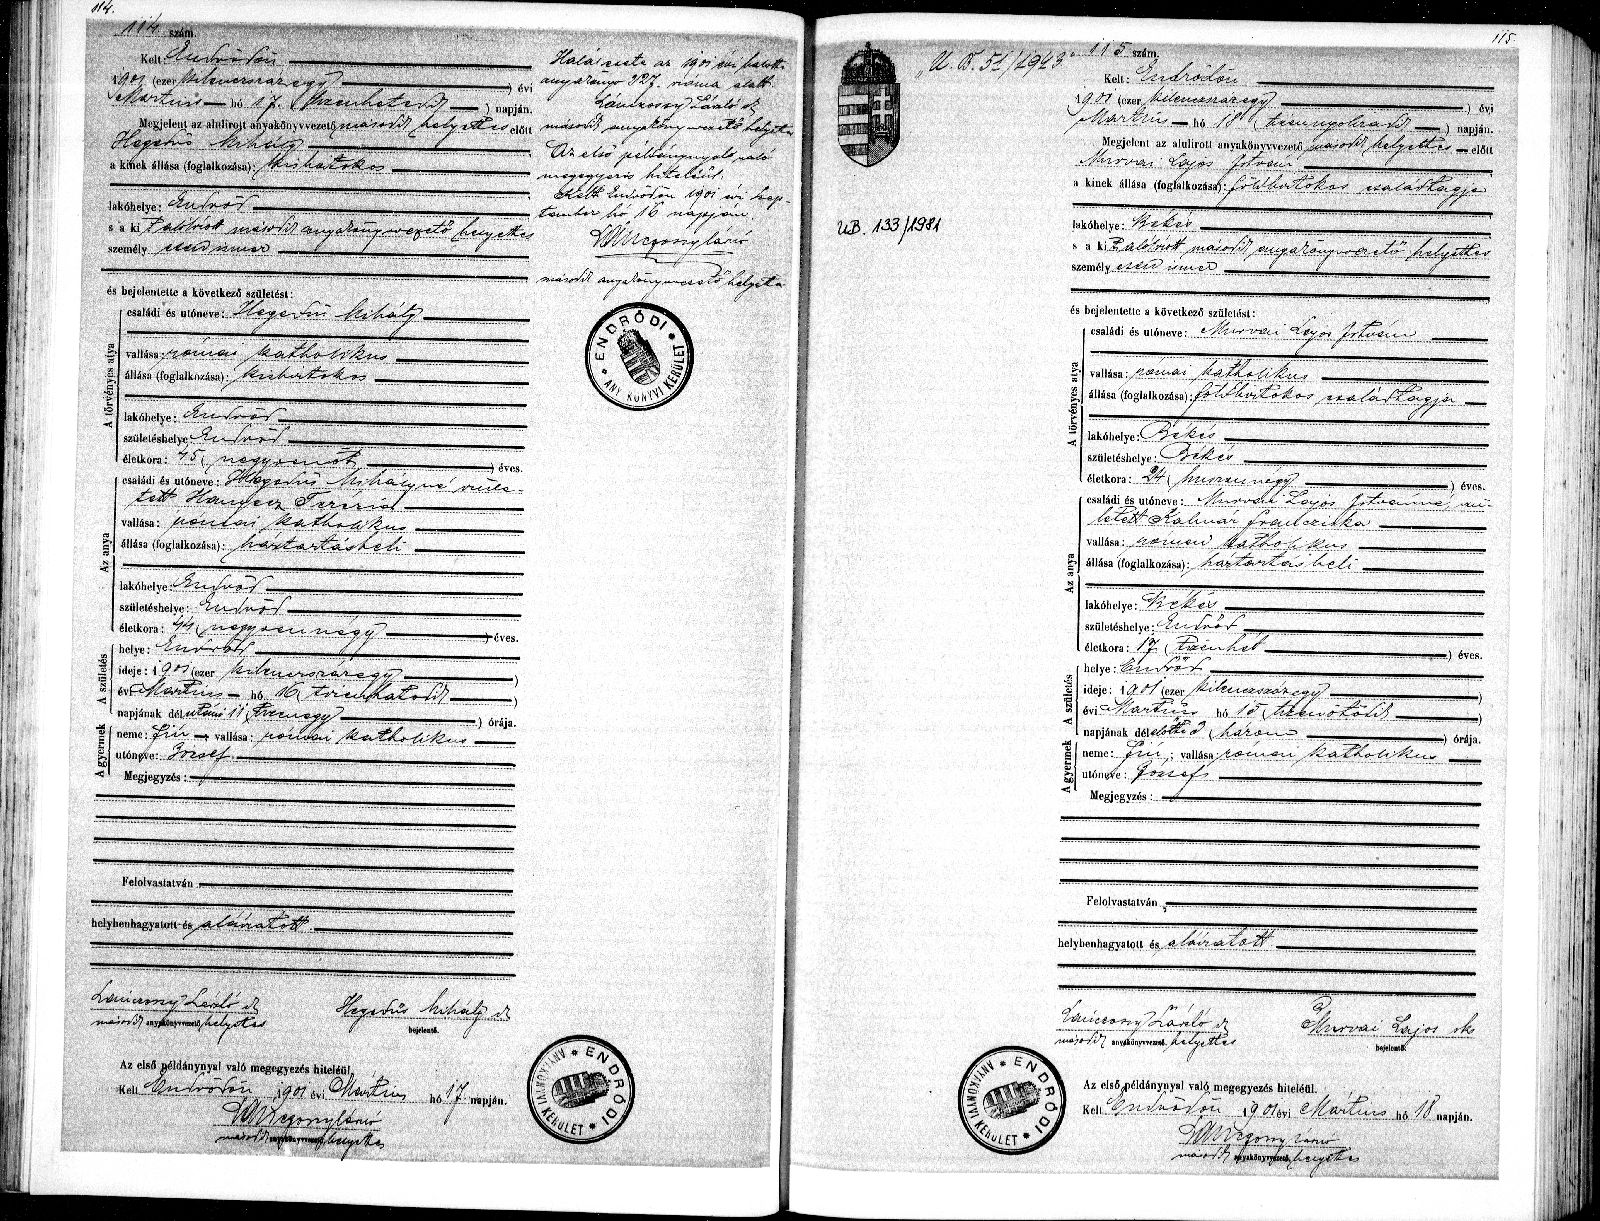 114.
114. szám.
Kelt: Endrődön
1901 (ezer kilenczszázegy) évi
Martius hó 17. (tizenhetedik) napján.
Megjelent az alulirott anyakönyvvezető második helyettes előtt
Hegedüs Mihály
a kinek állása (foglalkozása): kisbirtokos
lakóhelye: Endrőd
s a kit alólirott második anyakönyvvezető helyettes
személyesen ismer
és bejelentette a következő születést:
A törvényes atya
családi és utóneve: Hegedüs Mihály
vallása: római katholikus
állása (foglalkozása): kisbirtokos
lakóhelye: Endrőd
születéshelye: Endrőd
életkora: 45 (negyvenöt) éves.
Az anya
családi és utóneve: Hegedüs Mihályné szüle-
tett Terézia
vallása: római katholikus
állása (foglalkozása): háztartásbeli
lakóhelye: Endrőd
születéshelye: Endrőd
életkora: 44 (negyvennégy) éves.
A születés
helye: Endrőd
ideje: 1901 (ezer kilenczszázegy)
évi Martius hó 16 (tizenhatodik)
napjának délutáni 11 (tizenegy) órája.
A gyermek
neme: fiú vallása: római katholikus
utóneve: József
Megjegyzés:
Felolvastatván
helybenhagyatott és aláiratott
Lánczsony László sk
második anyakönyvvezető helyettes
Hegedüs Mihály sk
bejelentő.
Az első példánynyal való megegyezés hiteléül.
Kelt Endrődön 1901 évi Mártius hó 17 napján.
második anyakönyvvezető helyettes
Halálesete az 1901 évi halott
anyakönyv 327. száma alatt.
Lánczsony László sk
második anyakönyvvezető helyettes
Az első példánynyal való
megegyezés hiteléül.
Kelt Endrődön 1901 évi szep-
tember hó 16 napján.
második anyakönyvvezető helyettes
ENDRŐDI ANYAKÖNYVI KERÜLET
ENDRŐDI ANYAKÖNYVI KERÜLET
115.
U. B. 51/1943
UB. 133/1981
115 szám.
Kelt: Endrődön
1901 (ezer kilenczszázegy) évi
Martius hó 18 (tizennyolczadik) napján.
Megjelent az alulirott anyakönyvvezető második helyettes előtt
Murvai Lajos István
a kinek állása (foglalkozása): földbirtokos családtagja
lakóhelye: Békés
s a kit alólirott második anyakönyvvezető helyettes
személyesen ismer
és bejelentette a következő születést:
A törvényes atya
családi és utóneve: Murvai Lajos István
vallása: római katholikus
állása (foglalkozása): földbirtokos családtagja
lakóhelye: Békés
születéshelye: Békés
életkora: 24 (huszonnégy) éves.
Az anya
családi és utóneve: Murvai Lajos Istvánné, szü-
letett Kalmár Francziska
vallása: római katholikus
állása (foglalkozása): háztartásbeli
lakóhelye: Békés
születéshelye: Endrőd
életkora: 17 (tizenhét) éves.
A születés
helye: Endrőd
ideje: 1901 (ezer kilenczszázegy)
évi Martius hó 15 (tizenötödik)
napjának délelőtti 3 (három) órája.
A gyermek
neme: fiú; vallása: római katholikus
utóneve: József
Megjegyzés:
Felolvastatván
helybenhagyatott és aláiratott
Lánczsony László sk
második anyakönyvvezető helyettes
Murvai Lajos sk
bejelentő.
Az első példánynyal való megegyezés hiteléül.
Kelt Endrődön 1901 évi Mártius hó 18 napján.
második anyakönyvvezető helyettes
ENDRŐDI ANYAKÖNYVI KERÜLET